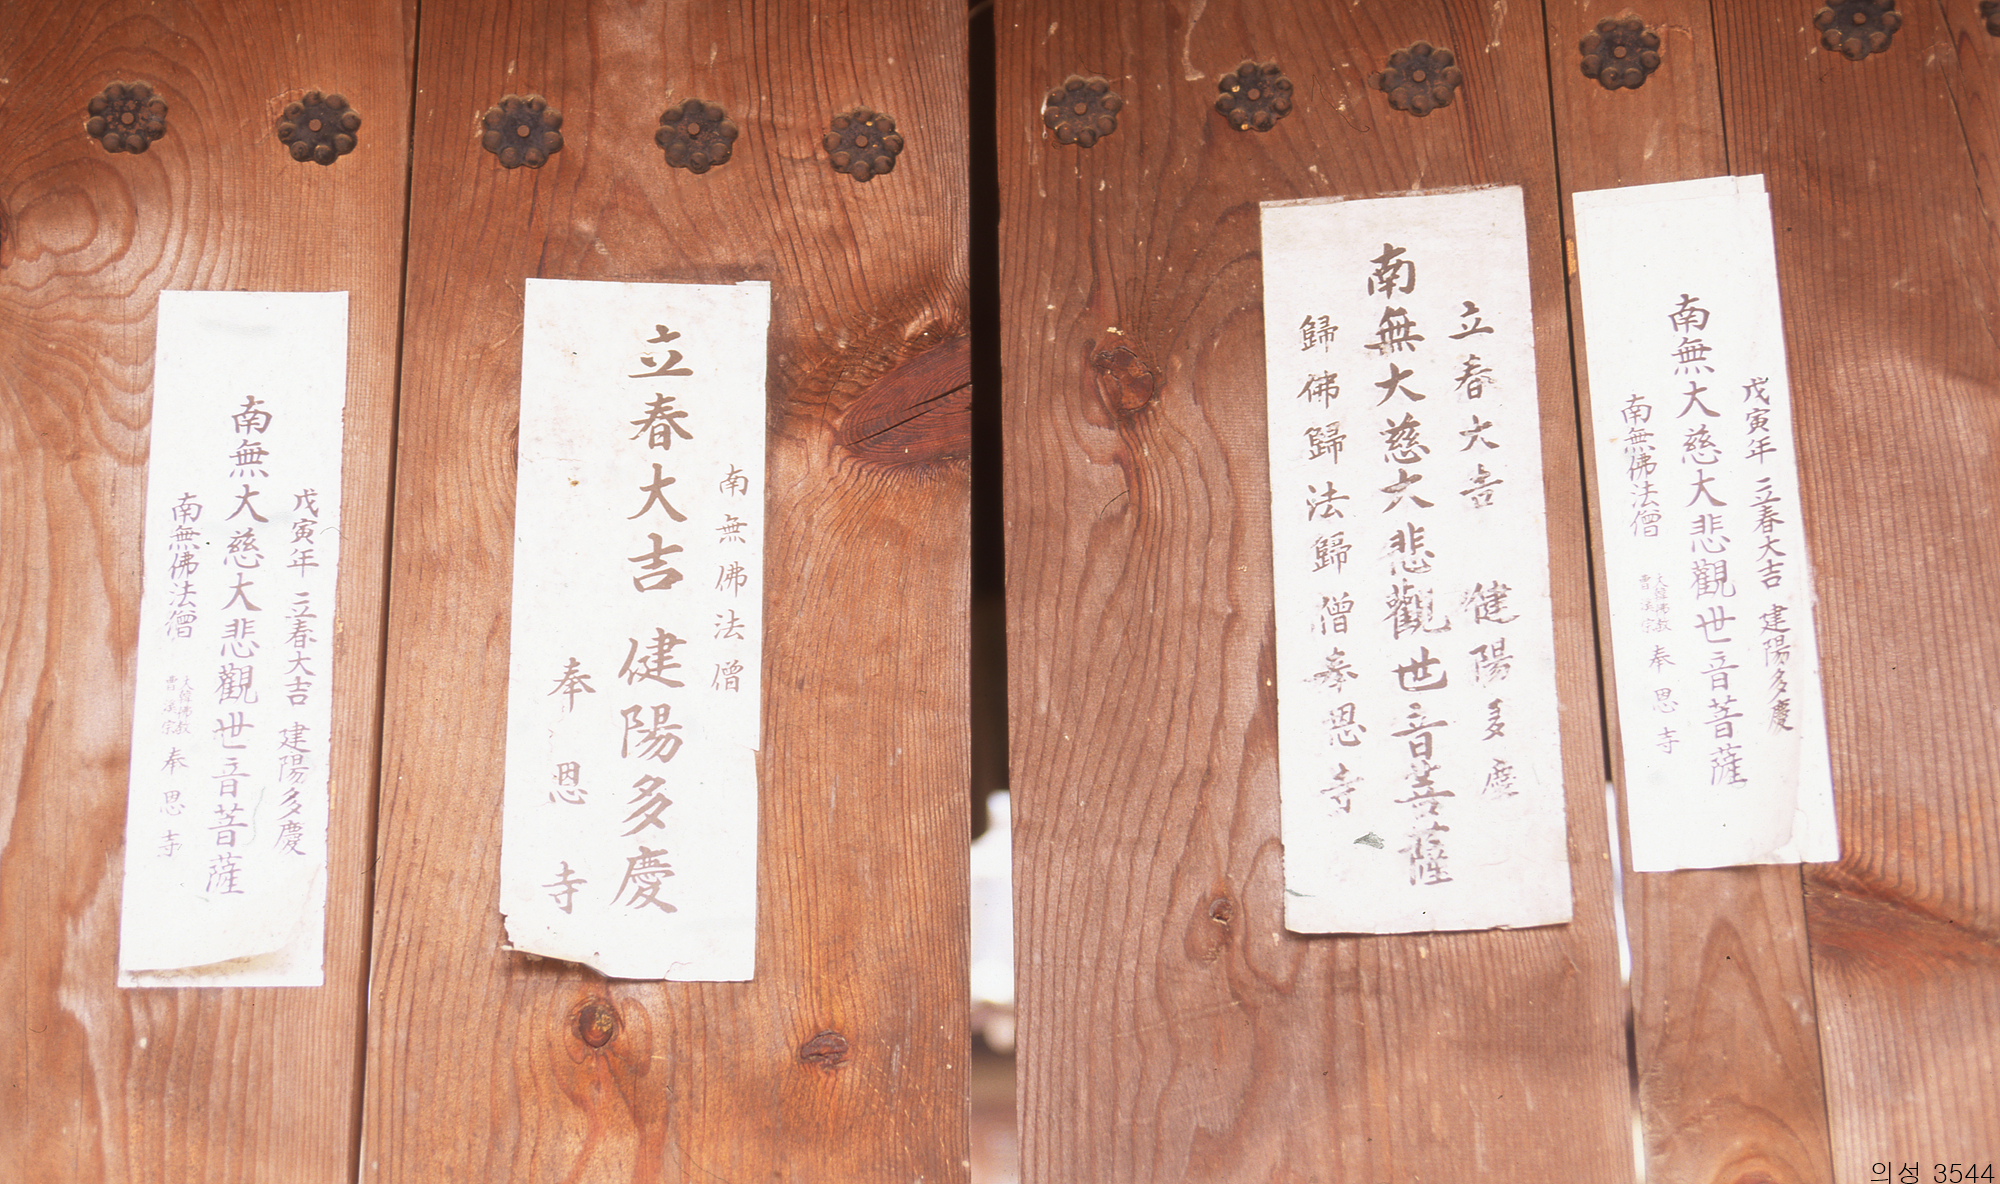 戊寅年 立春大吉 建陽多慶
南無大慈大悲觀世音菩薩
南無佛法僧 大韓佛教 曹溪宗 奉恩寺
南無佛法僧
立春大吉 健陽多慶
奉恩寺
立春大吉 健陽多慶
南無大慈大悲觀世音菩薩
歸佛歸法歸僧奉恩寺
戊寅年 立春大吉 建陽多慶
南無大慈大悲觀世音菩薩
南無佛法僧 大韓佛教 曹溪宗 奉恩寺
의성 3544